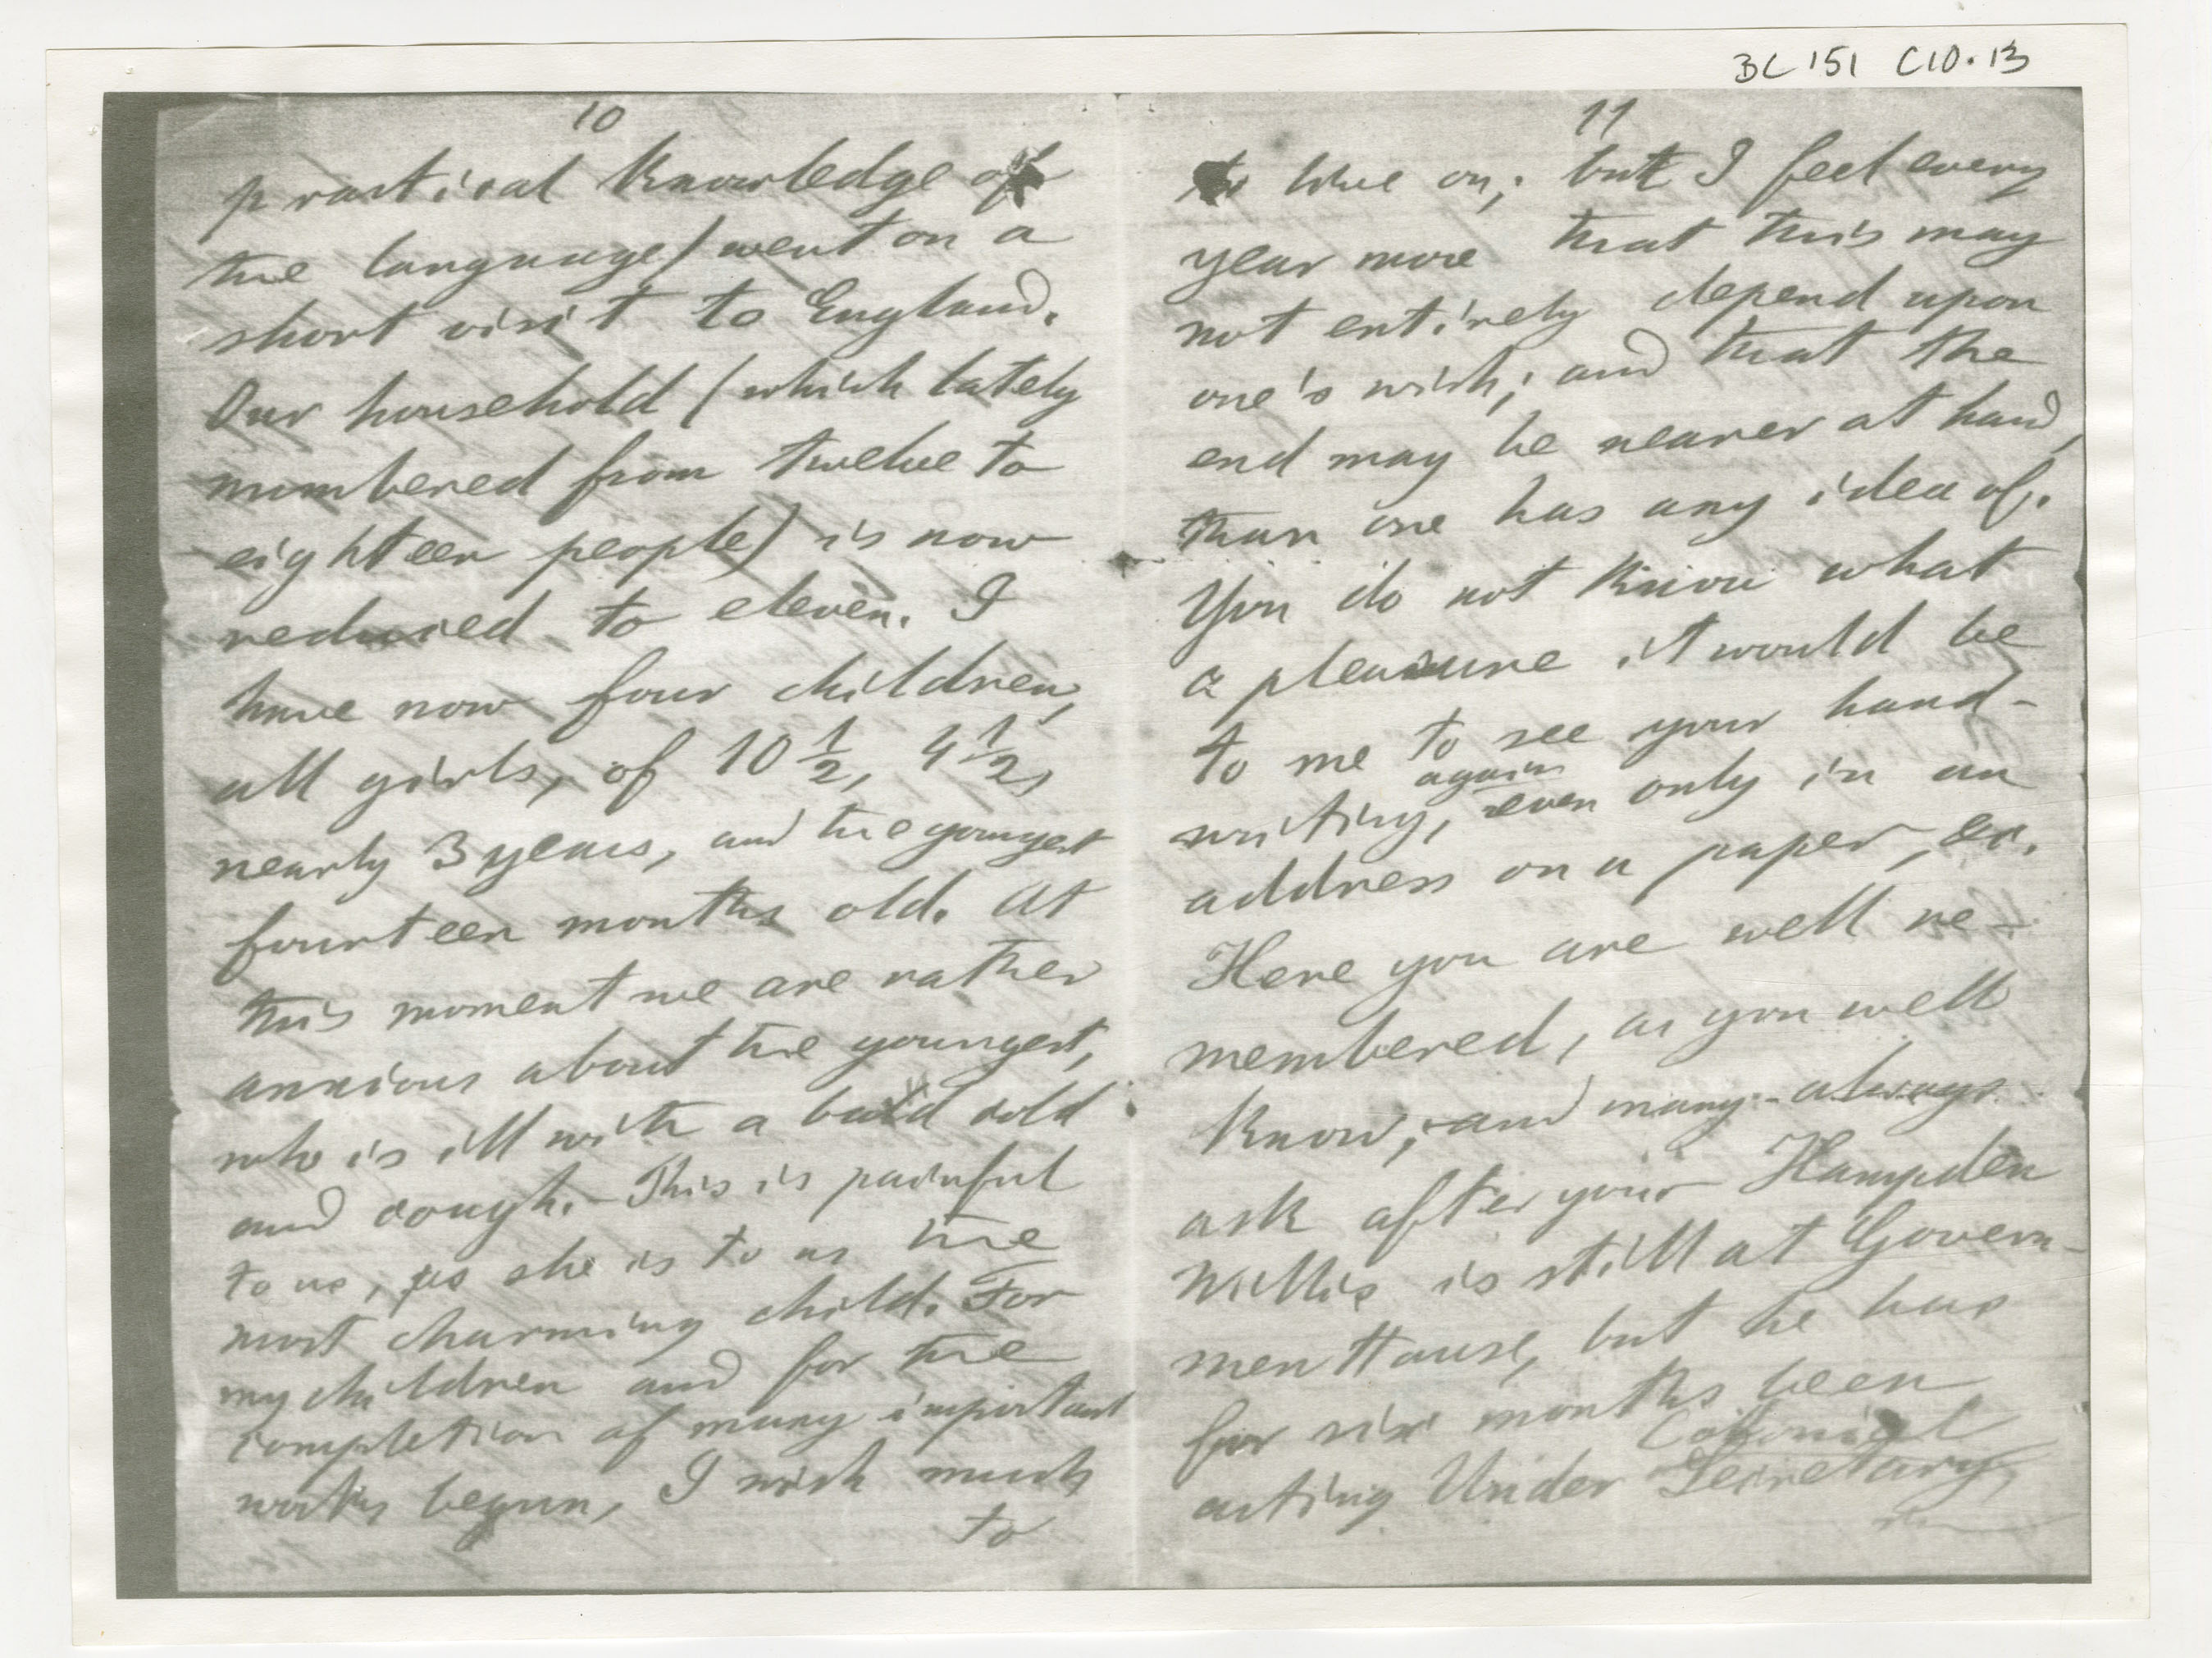 BC 151 C10.13
10
practical knowledge of
the language) went on a
short visit to England.
Our household (which lately
numbered from twelve to
eighteen people) is now
reduced to eleven. I
have now four children,
all girls, of 10 1/2, 4 1/2,
nearly 3 years, and the youngest
fourteen months old. At
this moment we are rather
anxious about the youngest,
who is ill with a bad cold
and cough. – This is painful
to us, as she is to us the
most charming child. For
my children and for the
completion of many important
works begun, I wish much
to
11
to live on; but I feel every
year more that this may
not entirely depend upon
one's wish; and that the
end may be nearer at hand,
than one has any idea of.
You do not know what
a pleasure it would be
to me to see your hand-
again
writing, even only in an
address on a paper, &c.
Here you are well re-
membered, as you well
know, and many always
ask after your Hampden
Willis is still at Govern-
ment House, but he has
for six months been
Colonial
acting Under Secretary,